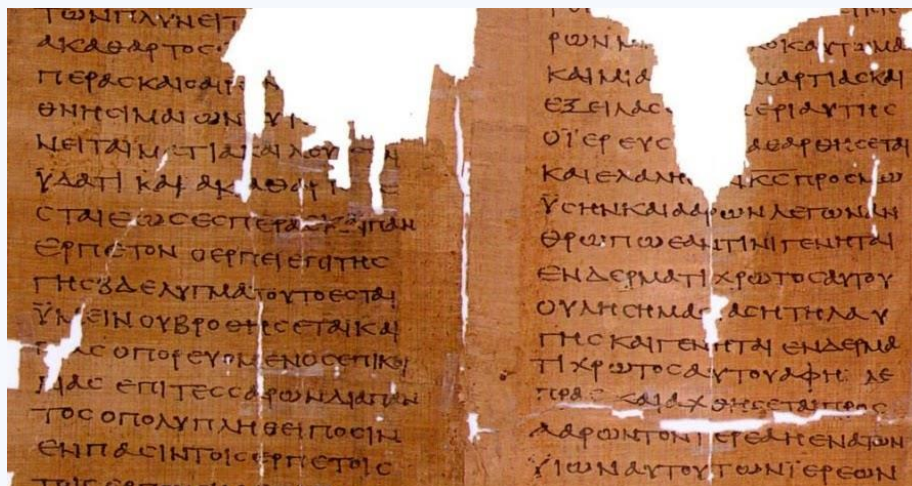 ΤΩΝΠΛΥΝΕΙΤ
ΑΚΑΘΑΡΤΟϹ
ΠΕΡΑϹΚΑΙΟΑΙΡ
ΘΝΗϹΙΜΑΙΩΝ
ΝΕΙΤΑΙΜ ΤΙΑΚΑΙΛΟΥ
ΫΔΑΤΙ ΚΑΙ ΑΚΑΘΑΡΤ Ε
ϹΤΑΙΕΩϹΕϹΠΕΡΑϹΚΑΙΠΑΝ
ΕΡΠΕΤΟΝ ΟΕΡΠΕΙΕΠΙΤΗϹ
ΓΗϹΒΔΕΛΥΓΜΑΤΟΥΤΟΕϹΤΑΙ
ΫΜΕΙΝΟΥΒΡΟΘΗϹΕΤΑΙΚΑΙ
ΑϹΟΠΟΡΕΥΟΜΕΝΟϹΕΠΙΚΟΙ
ΛΙΑϹ ΕΠΙΤΕϹϹΑΡΩΝΔΙΑΠΑΝ
ΤΟϹΟΠΟΛΥΠΛΗΘΕΙΠΟϹΙΝ
ΕΝΠΑϹΙΝΤΟΙϹΕΡΠΕΤΟΙϹ
ΡΩΝ ΟΚΑΥΤΩΜΑ
ΚΑΙΜΙΑ ΜΑΡΤΙΑϹΚΑΙ
ΕΞΕΙΛΑϹ ΠΕΡΙΑΥΤΗϹ
ΟΪΕΡΕΥϹ ΑΘΑΡΘΗϹΕΤΑΙ
ΚΑΙΕΛΑΛΗ ΚϹΠΡΟϹΜΩ
ΫϹΗΝΚΑΙΑΑΡΩΝΛΕΓΩΝΑΝ
ΘΡΩΠΩΕΑΝΤΙΝΙΓΕΝΗΤΑΙ
ΕΝΔΕΡΜΑΤΙΧΡΩΤΟϹΑΥΤΟΥ
ΟΥΛΗϹΗΜΑϹ ΑϹΗΤΗΛΑΥ
ΓΗϹΚΑΙΓΕΝΗΤΑΙ ΕΝΔΕΡΜΑ
ΤΙΧΡΩΤΟϹΑΥΤΟΥΑΦΗ ΛΕ
ΠΡΑϹ ΚΑΙΑΧΘΗϹΕΤΑΙΠΡΟϹ
ΑΑΡΩΝΤΟΝΪΕΡΕΑΗΕΝΑΤΩΝ
ΫΙΩΝΑΥΤΟΥΤΩΝΪΕΡΕΩΝ